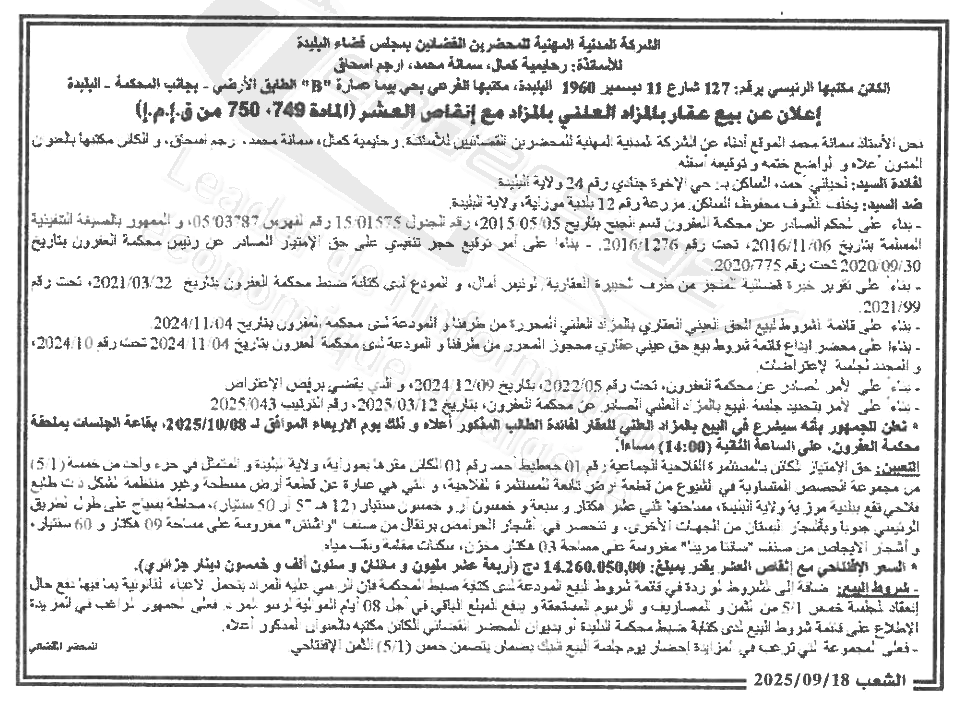 الشركة المدنية المهنية للمحضرين القضائيين بمجلس قضاء البليدة
للأساتذة: رحايمية كمال، سمانة محمد، ارجم اسحاق
الكائن مكتبها الرئيسي برقم: 127 شارع 11 ديسمبر 1960 البليدة، مكتبها الفرعي بحي بيما عمارة "B" الطابق الأرضي - بجانب المحكمة - البليدة
إعلان عن بيع عقار بالمزاد العلني بالمزاد مع إنقاص العشر (المادة 749، 750 من ق.إ.م.إ)
نحن الأستاذ سمانة محمد الموقع أدناه عن الشركة المدنية المهنية للمحضرين القضائيين للأساتذة. رحايمية كمال، سمانة محمد، رجم اسحاق، و الكائن مكتبها بالعنوان
المدون أعلاه و الواضع ختمه و توقيعه أسفله
لفائدة السيد: لحياني أحمد، الساكن بـ: حي الإخوة جنادي رقم 24 ولاية البليدة.
ضد السيد: يخلف خلوف محفوظ الساكن. مزرعة رقم 12 بلدية موزاية، ولاية البليدة.
- بناء على الحكم الصادر عن محكمة العفرون قسم الجنح بتاريخ 2015/05/05، رقم الجدول 15/01575 رقم الفهرس 05/03787، و الممهور بالصيغة التنفيذية
المسلمة بتاريخ 2016/11/06، تحت رقم 2016/1276. - بناءا على أمر توقيع حجز تنفيذي على حق الإمتياز الصادر عن رئيس محكمة العفرون بتاريخ
2020/09/30 تحت رقم 2020/775.
- بناءا على تقرير خبرة قضائية المنجز من طرف الخبيرة العقارية لونيس أمال، و المودع لدى كتابة ضبط محكمة العفرون بتاريخ 2021/03/22، تحت رقم
2021/99.
- بناء على قائمة الشروط لبيع الحق العيني العقاري بالمزاد العلني المحررة من طرفنا و المودعة لدى محكمة العفرون بتاريخ 2024/11/04.
- بناءا على محضر ايداع قائمة شروط بيع حق عيني عقاري محجوز المحرر من طرفنا و المودعة لدى محكمة العفرون بتاريخ 2024/11/04 تحت رقم 2024/10،
و المحدد لجلسة الإعتراضات.
- بناء على الأمر الصادر عن محكمة العفرون، تحت رقم 2022/05، بتاريخ 2024/12/09، و الذي يقضي برفض الإعتراض
- بناء على الأمر بتحديد جلسة البيع بالمزاد العلني الصادر عن محكمة العفرون، بتاريخ 2025/03/12، رقم الترتيب 2025/043
* نعلن للجمهور بأنه سيشرع في البيع بالمزاد العلني للعقار لفائدة الطالب المذكور أعلاه و ذلك يوم الاربعاء الموافق لـ 2025/10/08، بقاعة الجلسات بملحقة
محكمة العفرون، على الساعة الثانية (14:00) مساءا.
التعيين: حق الإمتياز الكائن بالمستثمرة الفلاحية الجماعية رقم 01 حطيط أحمد رقم 01 الكائن مقرها بموزاية، ولاية البليدة و المتمثل في جزء واحد من خمسة (5/1)
من مجموعة الحصص المتساوية في الشيوع من قطعة أرض تابعة للمستثمرة الفلاحية، و التي هي عبارة عن قطعة أرض مسطحة وغير منتظمة الشكل ذات طابع
فلاحي تقع ببلدية موزاية ولاية البليدة، مساحتها اثني عشر هكتار و سبعة و خمسون آر و خمسون سنتيار (12 هـ 57 آر 50 سنتيار)، محاطة بسياج على طول الطريق
الرئيسي جنوبا وبأشجار البستان من الجهات الأخرى، و تنحصر في أشجار الحوامض برتقال من صنف "واشنش" مغروسة على مساحة 09 هكتار و 60 سنتيار،
و أشجار الإيجاص من صنف "سانتا مريا" مغروسة على مساحة 03 هكتار مخزن، سكنات مقامة ونقب مياه
* السعر الإفتتاحي مع إنقاص العشر يقدر بمبلغ: 14.260.050,00 دج (أربعة عشر مليون و مائتان و ستون ألف و خمسون دينار جزائري).
- شروط البيع: ضافة إلى الشروط الواردة في قائمة شروط البيع المودعة لدى كتابة ضبط المحكمة فإن الراسي عليه المزاد يتحمل الأعباء القانونية بما فيها دفع حال
إنعقاد الجلسة خمس 5/1 من الثمن و المصاريف و الرسوم المستحقة و يدفع المبلغ الباقي في أجل 08 أيام الموالية لرسو المزاد. فعلى الجمهور الراغب في المزايدة
الإطلاع على قائمة شروط البيع لدى كتابة ضبط محكمة البليدة أو بديوان المحضر القضائي الكائن مكتبه بالعنوان المذكور أعلاه.
- فعلى المجموعة التي ترغب في المزايدة إحضار يوم جلسة البيع شيك بضمان يتضمن خمس (5/1) الثمن الإفتتاحي
المحضر القضائي
الشعب 2025/09/18